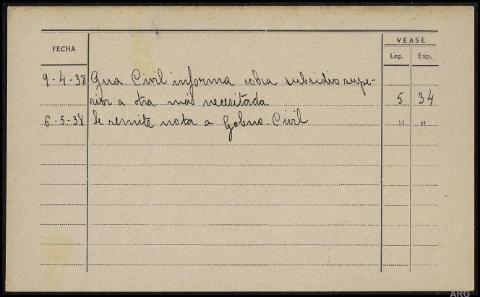 FECHA VEASE
Leg. Exp.
9-4-38 Gua Civil informa cobra subsidio supe-
rior a otra más necesitada 5 34
6-5-38 Se remite nota a Gobno. Civil " "
ARG